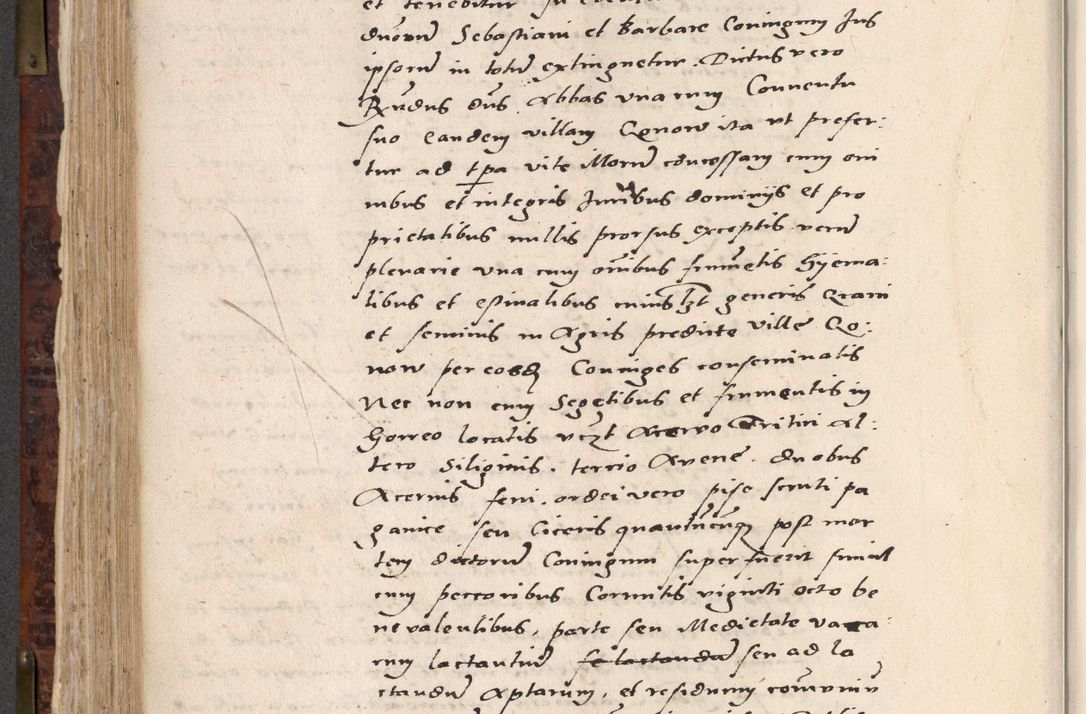 et tenebitur
duorum Sebastiani et Barbare Coniugum Jus
ipsorum in totum extinguetur. Dictus vero
Rndus dns Abbas vna cum Conuentu
suo eandem villam Conow ita vt prefer:
tur ad tpa vite illorum concessam cum om
nibus et integris Juribus dominijs et pro
prietatibus nullis prorsus exceptis verum
plenarie vna cum omibus frumetis hyema:
libus et estiualibus cuiuslzt generis Grani
et seminis in Agris predicte ville Co:
now per eosd Coniuges conseminatis
Nec non cum Segetibus et frumentis in
horreo locatis vczt Aceruo Tritici Al:
tero Siliginis. tercio Avene. duobus
Aceruis feni. ordei vero pise scruti pa
ganice seu Ciceris quantucuq post mor
tem dictorum Coniugum superfuerit simul
cum peccoribus Cornutis viginti octo be
ne valentibus, parte seu Medietate vacca:
rum lactantium fe lactandum seu ad la
ctandum Aptarum, et residuum